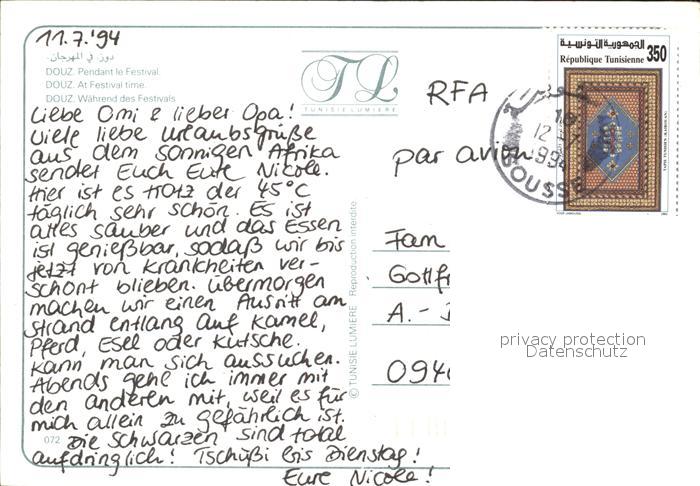 11.7.'94
دوز. في المهرجان.
DOUZ. Pendant le Festival.
DOUZ. At Festival time.
DOUZ. Während des Festivals
Liebe Omi & lieber Opa!
Viele liebe Urlaubsgrüße
aus dem sonnigen Afrika
sendet Euch Eure Nicole.
Hier ist es trotz der 45°C
täglich sehr schön. Es ist
alles sauber und das Essen
ist genießbar, sodaß wir bis
jetzt von Krankheiten ver-
schont blieben. Übermorgen
machen wir einen Ausritt am
Strand entlang auf Kamel,
Pferd, Esel oder Kutsche.
Kann man sich aussuchen.
Abends gehe ich immer mit
den anderen mit, weil es für
mich allein zu gefährlich ist.
Die Schwarzen sind total
aufdringlich! Tschüßi bis Dienstag!
Eure Nicole!
072
TL
TUNISIE LUMIERE
© TUNISIE LUMIERE Reproduction interdite
RFA
par avion
الجمهورية التونسية
République Tunisienne
350
12
1994
SOUSSE
Fam
Gottfr
A.-
094
privacy protection
Datenschutz